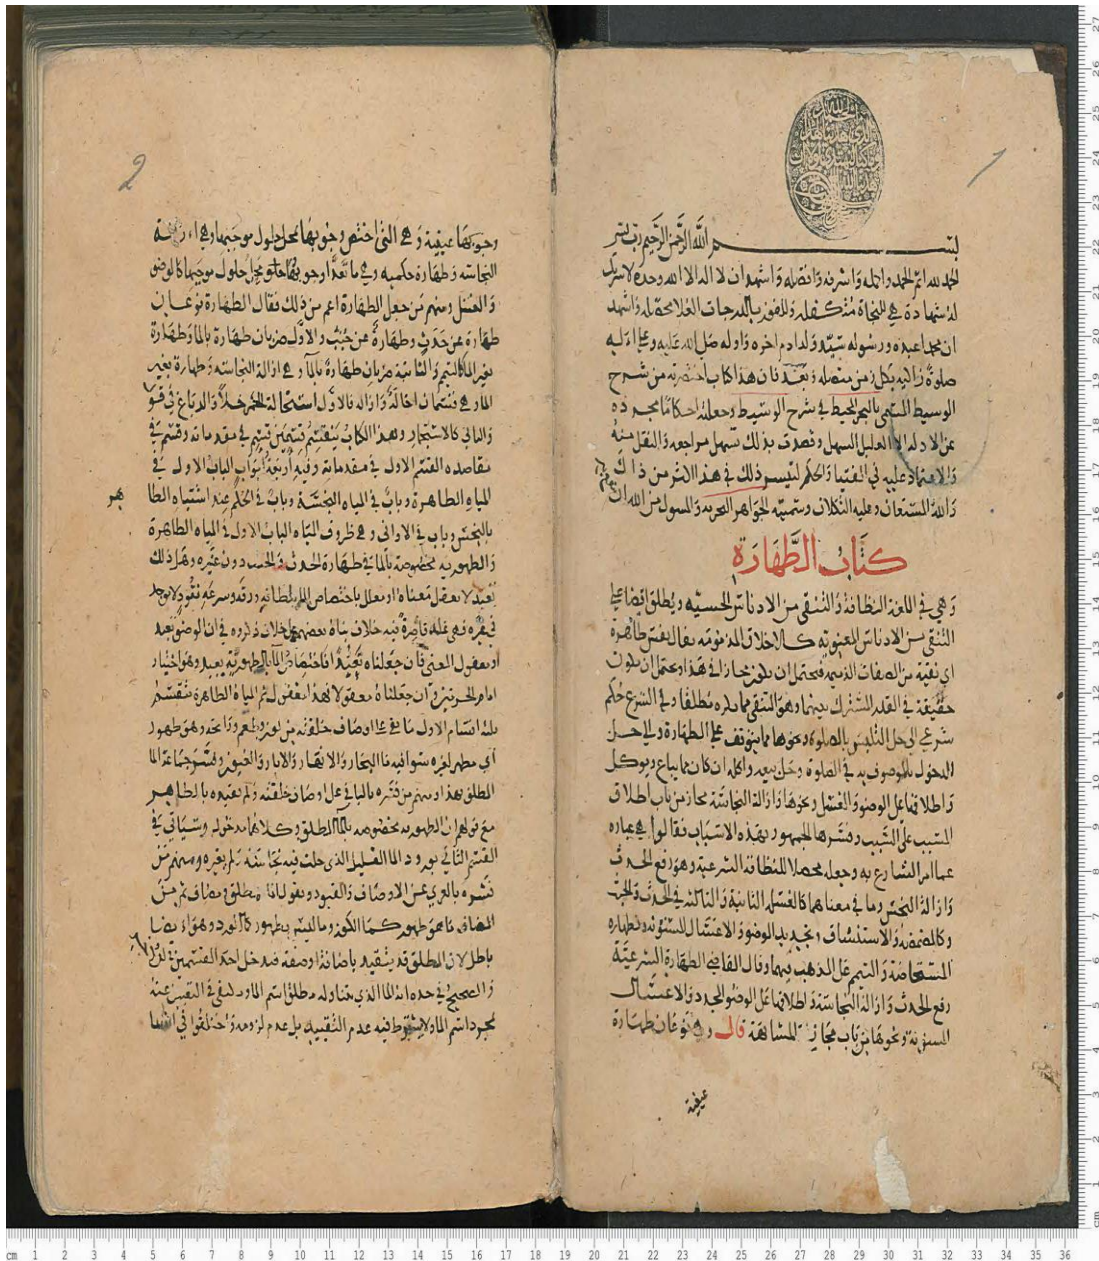 بسم الله الرحمن الرحيم رب يسر
الحمد لله اتم الحمد واكمله واشرفه وافضله واشهد ان لا اله الا الله وحده لا شريك
له شهادة هي للنجاة متكفله وللفوز بالدرجات العلا محصله واشهد
ان محمدا عبده ورسوله سيد ولد ادم اخره واوله صلى الله عليه وعلى اله
صلوة زاكية بكل من متصله وبعد فان هذا كتاب اختصرته من شرح
الوسيط المسمى بالبحر المحيط في شرح الوسيط وجعلته احكاما مجرده
عن الادلة الا العليل السهل وقصدت بذلك تسهل مراجعه والنقل منه
والاعتماد عليه في الفتيا والحكم لتيسر ذلك في هذا اكثر من ذاك
والله المستعان وعليه التكلان وسميته الجواهر البحريه والمسول من الله ان
كتاب الطهارة
وهي في اللغة النظافة والتنقي من الادناس الحسيه ويطلق ايضا على
التنقي من الادناس المعنويه كالاخلاق المذمومه يقال نفس طاهرة
اي نقية من الصفات الذميمه فيحتمل ان يكون مجازا في هذا ويحتمل ان يكون
حقيقة في القدر المشترك بينهما وهو التنقي مما يكره مطلقا وفي الشرع حكم
شرعي الى حل التلبس بالصلوة ونحوها مما يتوقف على الطهارة والى حل
الدخول بالموصوف به في الصلوة وحل بيعه واكله ان كان مما يباع ويوكل
واطلاقها على الوضوء والغسل ونحوها وازالة النجاسة مجاز من باب اطلاق
المسبب على السبب وفسرها الجمهور بهذه الاسباب فقالوا هي عباره
عما امر الشارع به وجعله محصلا للنظافة الشرعية وهو رفع الحدث
وازالة النجس وما في معناهما كالغسلة الثانية والثالثة في الحدث والخبث
وكالمضمضة والاستنشاق وتجديد الوضوء والاغتسال المسنونة وطهارة
المستحاضة والتيمم على المذهب فيهما وقال القاضي الطهارة الشرعية
رفع الحدث وازالة النجاسة واطلاقها على الوضوء المجدد والاغتسال
المسنونة ونحوها من باب مجاز المشابهة قال وهي نوعان طهارة
عينية
وجوبها عينية وهي التي اختص وجوبها بمحل حلول موجبها وهي ازالة
النجاسة وطهارة حكميه وهي ما تعدا وجوبها محل حلول موجبها كالوضو
والغسل ومنهم من جعل الطهارة اعم من ذلك فقال الطهارة نوعان
طهارة عن حدث وطهارة عن خبث والاول ضربان طهارة بالماء وطهارة
بغير الماء كالتيمم والثانية ضربان طهارة بالماء وهي ازالة النجاسة وطهارة بغير
الماء وهي قسمان احالة وازاله فالاول استحالة الخمر خلا والدباغ في قول
والثاني كالاستنجاء وهذا الكتاب ينقسم قسمين قسم في مقدماته وقسم في
مقاصده القسم الاول في مقدماته وفيه اربعة ابواب الباب الاول في
المياه الطاهرة وباب في المياه النجسة وباب في الحكم عند اشتباه الطا
هر
بالنجس وباب في الاواني وهي ظروف المياه الباب الاول في المياه الطاهرة
والطهورية مخصوصة بالماء في طهارة الحدث والخبث دون غيره وهل ذلك
تعبد لا يعقل معناه او معلل باختصاص الماء بلطافة ورقة وسرعة نفوذ ولا يوجد
في غيره فهي علة قاصرة فيه خلاف بناه بعضهم على خلاف ذكروه في ان الوضو تعبد
او معقول المعنى فان جعلناه تعبدا فاختصاص الماء بالطهورية تعبد وهو اختيار
امام الحرمين وان جعلناه معقولا فهذا معقول ثم المياه الطاهرة تنقسم
ثلثة اقسام الاول ما بقي على اوصاف خلقته من لون وطعم ورائحة وهو طهور
اي مطهر لغيره سوا فيه ماء البحار والانهار والابار والعيون وفسر جماعة الماء
المطلق بهذا ومنهم من فسره بالباقي على اوصاف خلقته ولم يقيده بالطاهر
مع قولهم ان الطهورية مخصوصة بالماء المطلق وكلاهما مدخول وسياتي في
القسم الثاني يورد الماء القليل الذي حلت فيه نجاسة ولم يغيره ومنهم من
فسره بالعري عن الاوصاف والقيود ونقول لنا مطلق ومضاف ثم من
المضاف ما هو طهور كماء الكوز وما ليس بطهور كماء الورد وهو ايضا
باطل لان المطلق قد يتقيد باضافة او صفة فيدخل احد القسمين في الاخر
والصحيح في حده انه الماء الذي يتناوله مطلق اسم الماء ويكتفى في التعبير عنه
بمجرد اسم الماء ولا يشترط فيه عدم التقييد بل عدم لزومه واختلفوا في اشيا